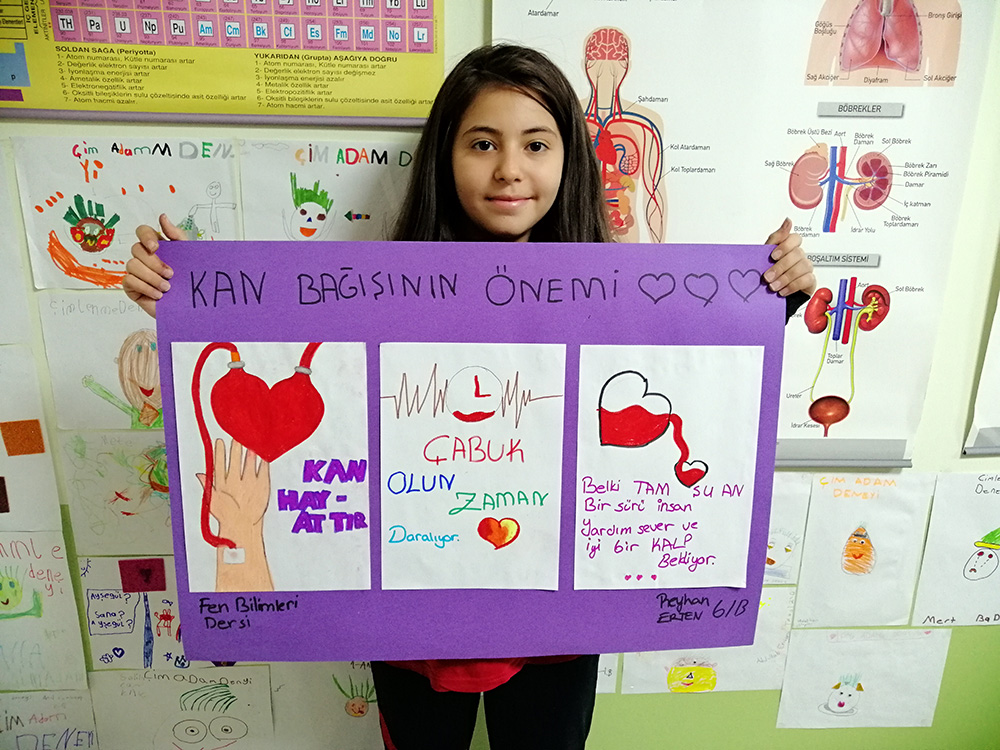 TH Pa U Np Pu Am Cm Bk Cf Es Fm Md No Lr
SOLDAN SAĞA (Periyotta)
1- Atom numarası, Kütle numarası artar
2- Değerlik elektron sayısı artar
3- İyonlaşma enerjisi artar
4- Ametalik özellik artar
5- Elektronegatiflik artar
6- Oksitli bileşiklerin sulu çözeltisinde asit özelliği artar
7- Atom hacmi azalır.
YUKARIDAN (Grupta) AŞAĞIYA DOĞRU
1- Atom numarası, Kütle numarası artar
2- Değerlik elektron sayısı değişmez
3- İyonlaşma enerjisi azalır
4- Metalik özellik artar
5- Elektropozitiflik artar
6- Oksitli bileşiklerin sulu çözeltisinde
7- Atom hacmi artar.
Atardamar
Şahdamarı
Kol Atardamarı
Kol Toplardamarı
Göğüs Boşluğu
Bronş Girişi
Sağ Akciğer
Diyafram
Sol Akciğer
BÖBREKLER
Böbrek Üstü Bezi
Aort
Böbrek Damarı
Sol Böbrek
Sağ Böbrek
Böbrek Zarı
Böbrek Piramidi
Damar
İç katman
Böbrek Toplardamarı
İdrar Yolu
BOŞALTIM SİSTEMİ
Sol Böbrek
Aort
Toplar Damar
Üreter
İdrar Kesesi
Çim AdamM DEN.
ÇİM ADAM D
KAN BAĞIŞININ ÖNEMİ
KAN
HAY-
AT TIR
ÇABUK
OLUN
ZAMAN
Daralıyor.
Belki TAM ŞU AN
Bir sürü insan
Yardım sever ve
iyi bir KALP
Bekliyor.
Fen Bilimleri
Dersi
Reyhan
ERTEN 6/B
ÇİM ADAM
DENEYİ
Mert
Ayşegül?
Sana?
Ayşegül?
Çim Adam
DENEY